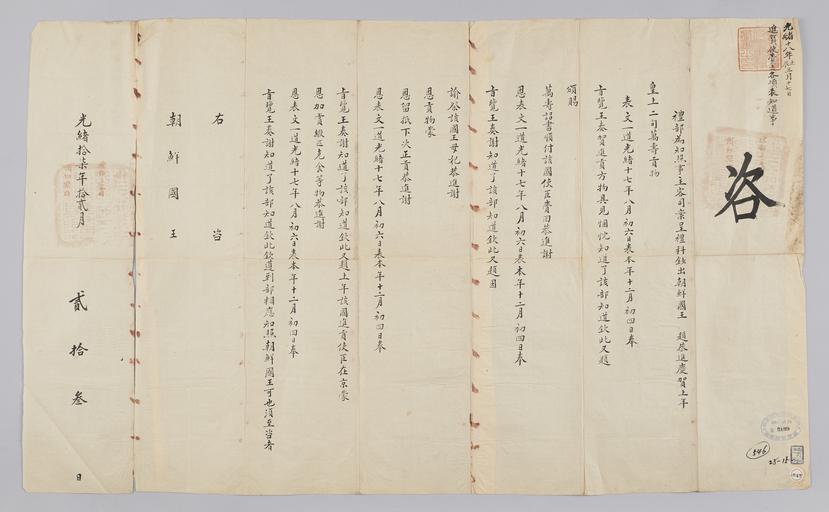 光緒十八年
進賀使
咨
禮部為知照事主客司案呈禮科鈔出朝鮮國王 題恭進慶賀上年
皇上二司萬壽貢物
表文一道光緒十七年八月初六日表本年十二月初四日奉
旨覽王奏賀進貢方物具見悃忱知道了該部知道欽此又題
頒賜
萬壽詔書順付該國使臣賫回恭進謝
恩表文一道光緒十七年八月初六日表本年十二月初四日奉
旨覽王奏謝知道了該部知道欽此又題因
諭祭該國王母妃恭進謝
恩貢物蒙
恩留抵下次正貢恭進謝
恩表文一道光緒十七年八月初六日表本年十二月初四日奉
旨覽王奏謝知道了該部知道欽此又題上年該國進貢使臣在京蒙
恩加賞緞疋克食等物恭進謝
恩表文一道光緒十七年八月初六日表本年十二月初四日奉
旨覽王奏謝知道了該部知道欽此欽遵到部相應知照朝鮮國王可也須至咨者
右 咨
朝鮮國王
光緒拾柒年拾貳月 貳拾叁 日
546
25-15